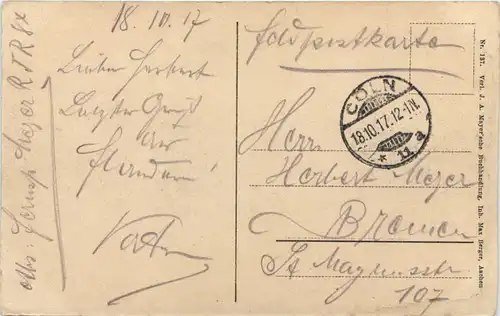 18.10.17
Lieber Herbert
Letzter Gruß
aus
Flandern!
Vater
Abs: Mejer R J R 8x
Feldpostkarte
CÖLN
18.10.17.12-1N.
* 11 a
Herrn
Herbert Mejer
Bremen
St Magnusstr
107
Nr. 137. Verl. J. A. Mayer'sche Buchhandlung, Inh. Max Berger, Aachen